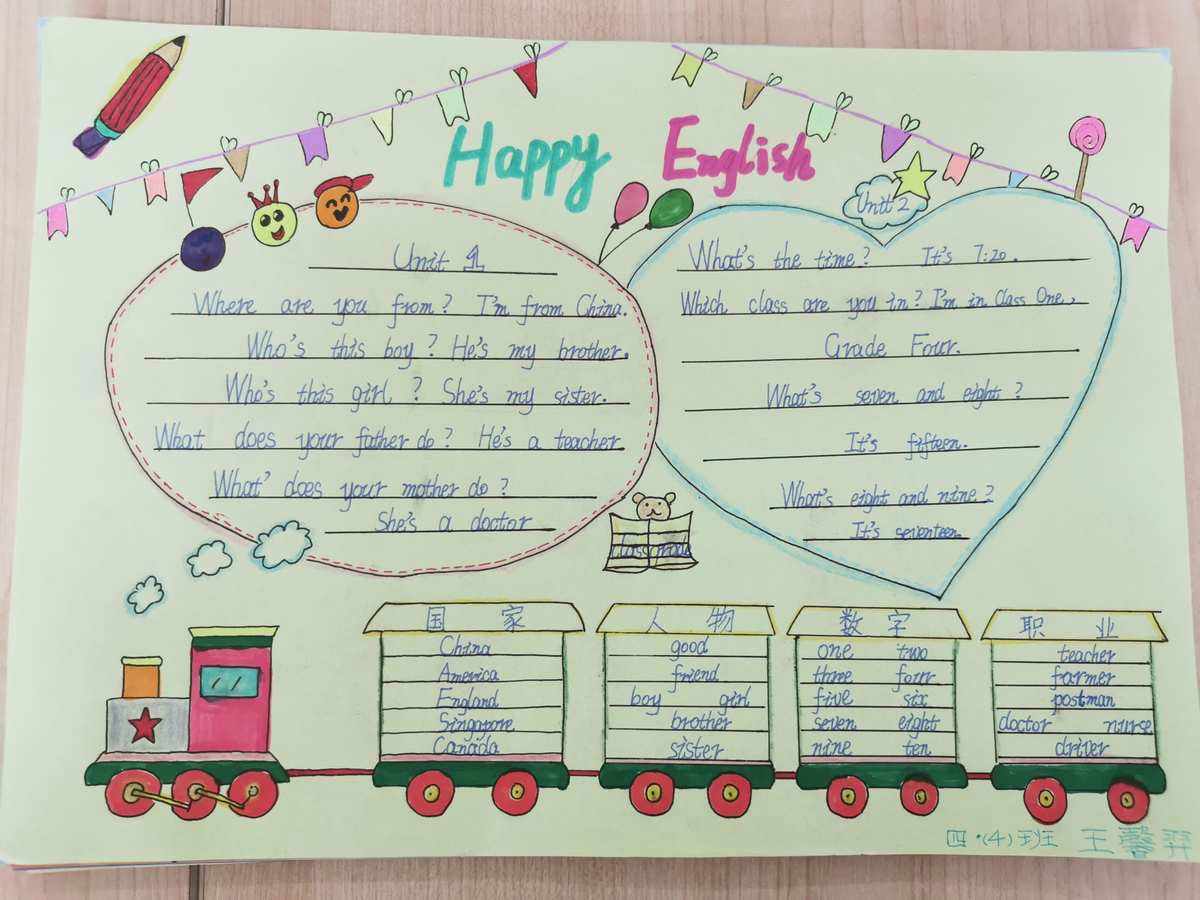 Happy English
Unit 1
Where are you from? I'm from China.
Who's this boy? He's my brother.
Who's this girl? She's my sister.
What does your father do? He's a teacher.
What' does your mother do?
She's a doctor
Unit 2
What's the time? It's 7:20.
Which class are you in? I'm in Class One,
Grade Four.
What's seven and eight?
It's fifteen.
What's eight and nine?
It's seventeen.
国家
China
America
England
Singapore
Canada
人物
good
friend
boy girl
brother
sister
数字
one two
three four
five six
seven eight
nine ten
职业
teacher
farmer
postman
doctor nurse
driver
四·(4)班 王馨羿